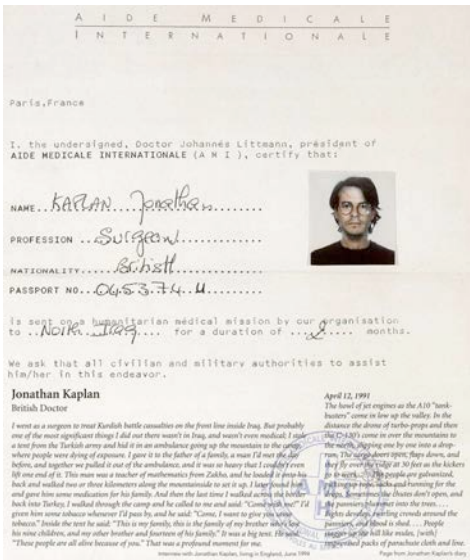 A I D E M E D I C A L E
I N T E R N A T I O N A L E
Paris,France
I. the undersigned, Doctor Johannes Littmann, président of
AIDE MEDICALE INTERNATIONALE (A M I), certify that:
NAME..KAPLAN Jonathan
PROFESSION ..Surgeon
NATIONALITY......British
PASSPORT NO...
is sent on a humanitarian médical mission by our organisation
to ..North Iraq........ for a duration of ... months.
We ask that all civilian and military authorities to assist
him/her in this endeavor.
Jonathan Kaplan
British Doctor
I went as a surgeon to treat Kurdish battle casualties on the front line inside Iraq. But probably
one of the most significant things I did out there wasn't in Iraq, and wasn't even medical; I stole
a tent from the Turkish army and hid it in an ambulance going up the mountain to the camp,
where people were dying of exposure. I gave it to the father of a family, a man I'd met the day
before, and together we pulled it out of the ambulance, and it was so heavy that I couldn't even
lift one end of it. This man was a teacher of mathematics from Zakho, and he loaded it onto his
back and walked two or three kilometers along the mountainside to set it up. I later found him
and gave him some medication for his family. And then the last time I walked across the border
back into Turkey, I walked through the camp and he called to me and said: "Come I'd
given him some tobacco whenever I'd pass by, and he said: "Come, I want to give you some
tobacco." Inside the tent he said: "This is my family, this is the family of my brother with
his nine children, and my other brother and fourteen of his family." It was a big tent. He said:
"These people are all alive because of you." That was a profound moment for me.
Interview with Jonathan Kaplan, living in England, June 1994
April 12, 1991
The howl of jet engines as the A10 "tank-
busters" come in low up the valley. In the
distance the drone of turbo-props and then
the C-130's come in over the mountains to
the north, dipping one by one into a drop-
run. The cargo doors open, flaps down, and
they fly over the ridge at 30 feet as the kickers
go to work. The people are galvanized,
and running for the
Sometimes the chutes don't open, and
the panniers into the trees. . . .
Fights develop, crowds around the
panniers, and blood is shed. . . . People
up the hill like mules, [with]
packs of parachute cloth and line.
Page from Jonathan Kaplan's diary